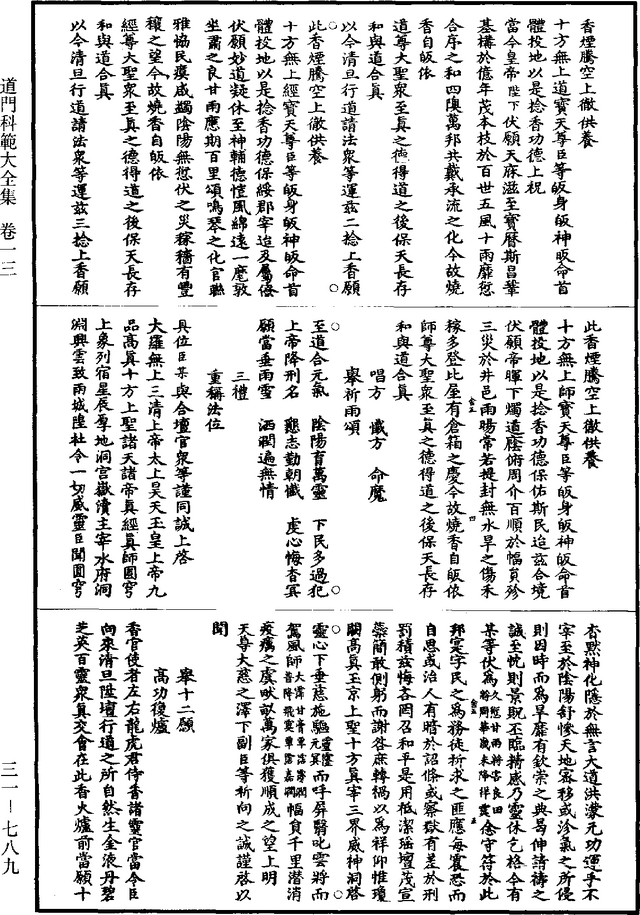 道門科範大全集　卷一三
三一－七八九
香煙騰空上徹供養
十方無上道寶天尊臣等皈身皈神皈命首
體投地以是捻香功德上祝
當今皇帝陛下伏願天庥滋至寶曆斯昌鞏
基構於億年茂本枝於百世五風十雨靡愆
合序之和四隩萬邦共戴承流之化今故燒
香自皈依
道尊大聖衆至真之德得道之後保天長存
和與道合真
以今清旦行道請法衆等運茲二捻上香願
此香煙騰空上徹供養
十方無上經寶天尊臣等皈身皈神皈命首
體投地以是捻香功德保綏郡宰迨及屬僚
伏願妙道凝休至神輔德愷風綿遠一麾敦
坐肅之良甘雨應期百里頌鳴琴之化官聯
雅協民瘼咸蠲陰陽無愆伏之災稼穡有豐
穰之望今故燒香自皈依
經尊大聖衆至真之德得道之後保天長存
和與道合真
以今清旦行道請法衆等運茲三捻上香願
此香煙騰空上徹供養
十方無上師寶天尊臣等皈身皈神皈命首
體投地以是捻香功德保佑斯民迨茲合境
伏願帝暉下燭道蔭俯周介百順於幅員殄
三災於井邑雨暘常若提封無水旱之傷禾
稼多登比屋有倉箱之慶今故燒香自皈依
師尊大聖衆至真之德得道之後保天長存
和與道合真
唱方　懺方　命魔
舉祈雨頌
至道合元氣　陰陽育萬靈　下民多過犯
上帝降刑名　懇志勤朝懺　虔心悔杳冥
願當垂雨雪　洒潤遍無情
三禮
重稱法位
具位臣某與合壇官衆等謹同誠上啓
大羅無上三清上帝太上昊天玉皇上帝九
品高真十方上聖諸天諸帝真經真師圓穹
上象列宿星辰厚地洞宫嶽瀆主宰水府洞
淵興雲致雨城隍社令一切威靈臣聞圓穹
杳默神化隱於無言大道洪濛元功運乎不
宰至於陰陽舒慘天地密移或沴氣之所侵
則因時而為旱靡有欽崇之典曷伸請禱之
誠至忱則景貺丕臨精感乃靈休乞格今有
某等伏為久愆甘雨將害良田念守符於此
邦寔字民之為務徒祈求之匪應每震恐而
自思或治人有暗於詔條或察獄有差於刑
罰積茲悔吝罔召和平是用柢潔瑤壇茂宣
蘂簡敢側躬而謝咎庶轉禍以為祥仰惟瓊
闕高真玉京上聖十方真宰三界威神洞啓
靈心下垂慈施驅而呼屏翳叱雲將而
駕風師幅員千里潛消
疫癘之虞畎畝萬家俱獲順成之望上明
天尊大慈之澤下副臣等祈向之誠謹啓以
聞
舉十二願
高功復爐
香官使者左右龍虎君侍香諸靈官當令臣
向來清旦陞壇行道之所自然生金液丹碧
芝英百靈衆真交會在此香火爐前當願十